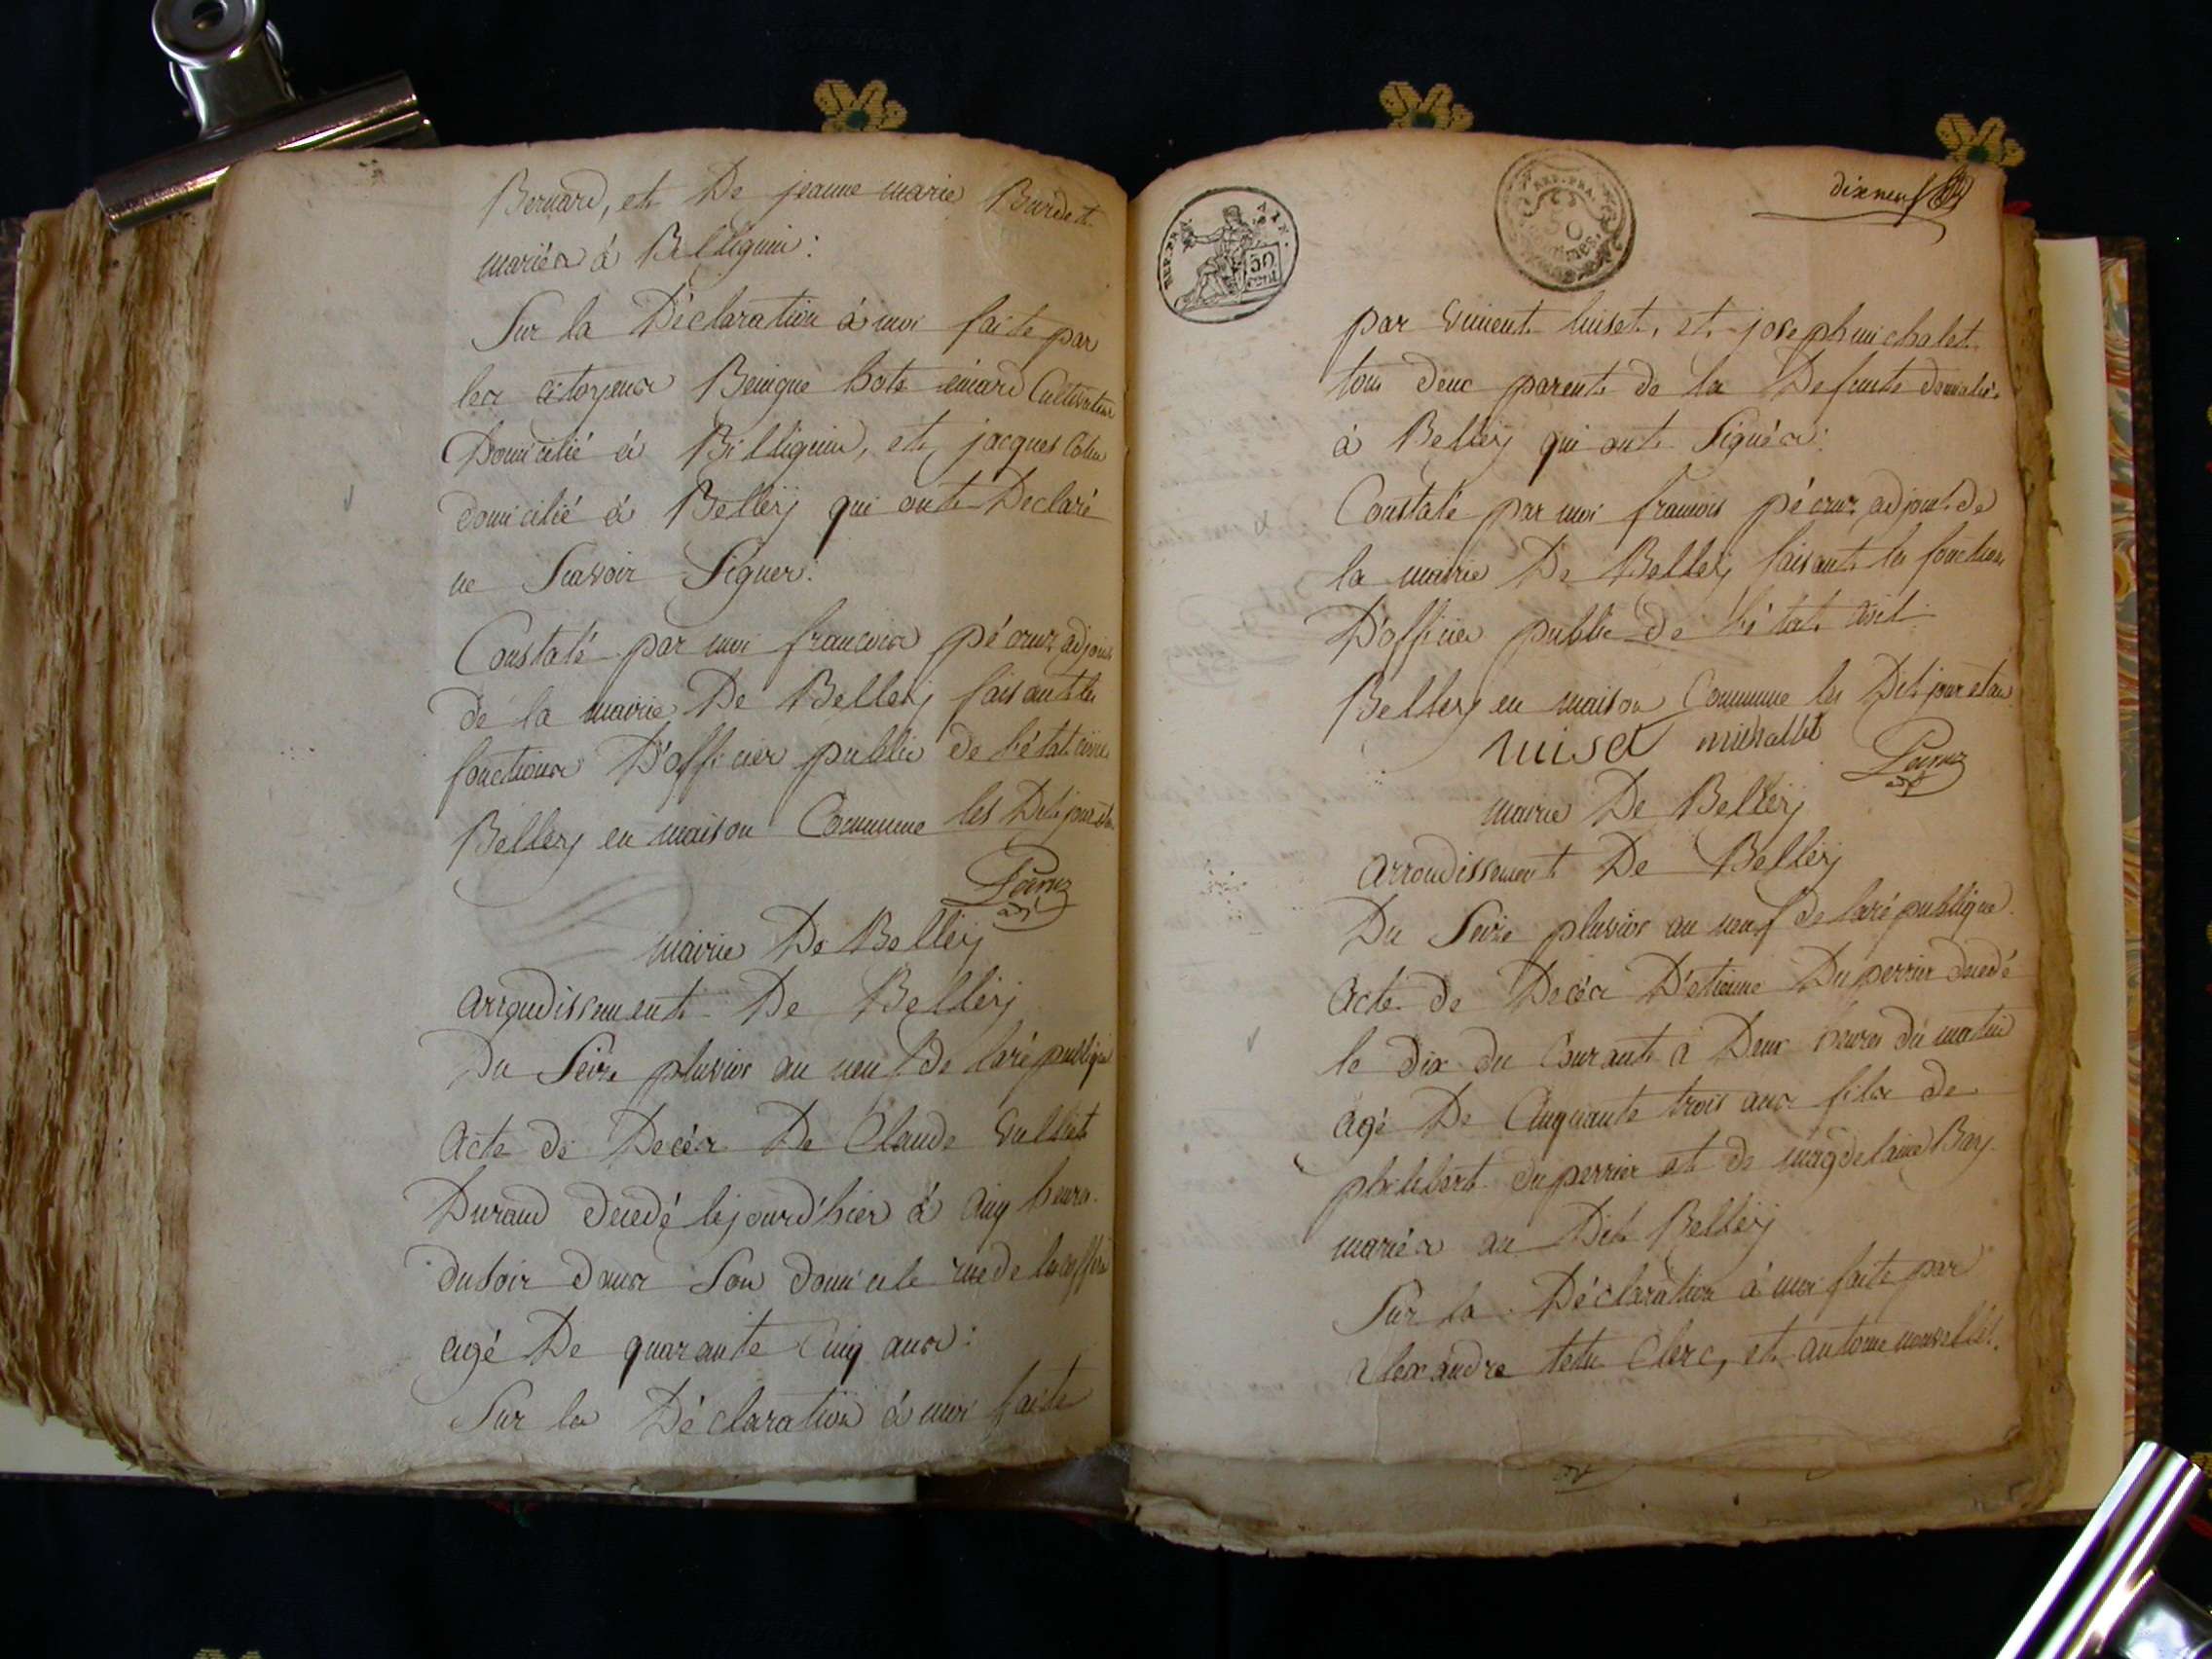 Bernard, et De jeanne marie Burdet
mariés à Billiguin:
Sur la Déclaration à moi faite par
les citoyens Benigne hote Cultivateur
Domicilié à Billiguin, et jacques Colin
domicilié à Belley qui ont Declaré
ne Scavoir Signer.
Constaté par moi francois pécruz adjoint
de la mairie De Belley faisant les
fonctions D'officier public de l'état civil
Belley en maison Commune les Dit jour et an
Pécruz
adj
mairie De Belley
arrondissement De Belley
Du Seize pluviose an neuf de la république
Acte de Décés De Claude Vulliet
Durand decedé le jourd'hier à cinq heures
du soir dans Son domicile rue de
agé De quarante Cinq ans:
Sur la Déclaration à moi faite
REP. FRA.
50
cent
REP. FRA.
50
centimes.
dixneuf
par Vincent luiset, et joseph michalet
tous deux parents de la Defunte domiciliés
à Belley qui ont Signés:
Constaté par moi francois pécruz adjoint de
la mairie De Belley faisant les fonctions
D'officier public de l'état civil
Belley en maison Commune les Dit jour et an
luiset michallet
Pécruz
adj
mairie De Belley
arrondissement De Belley
Du Seize pluviose an neuf de la république.
Acte de Décés D'etienne Duperrier decedé
le dix du Courant à Deux heures du matin
agé De Cinquante trois ans fils de
philibert duperrier et de magdelaine Bary
mariés au Dit Belley
Sur la Déclaration à moi faite par
alexandre tetu Clerc, et antoine